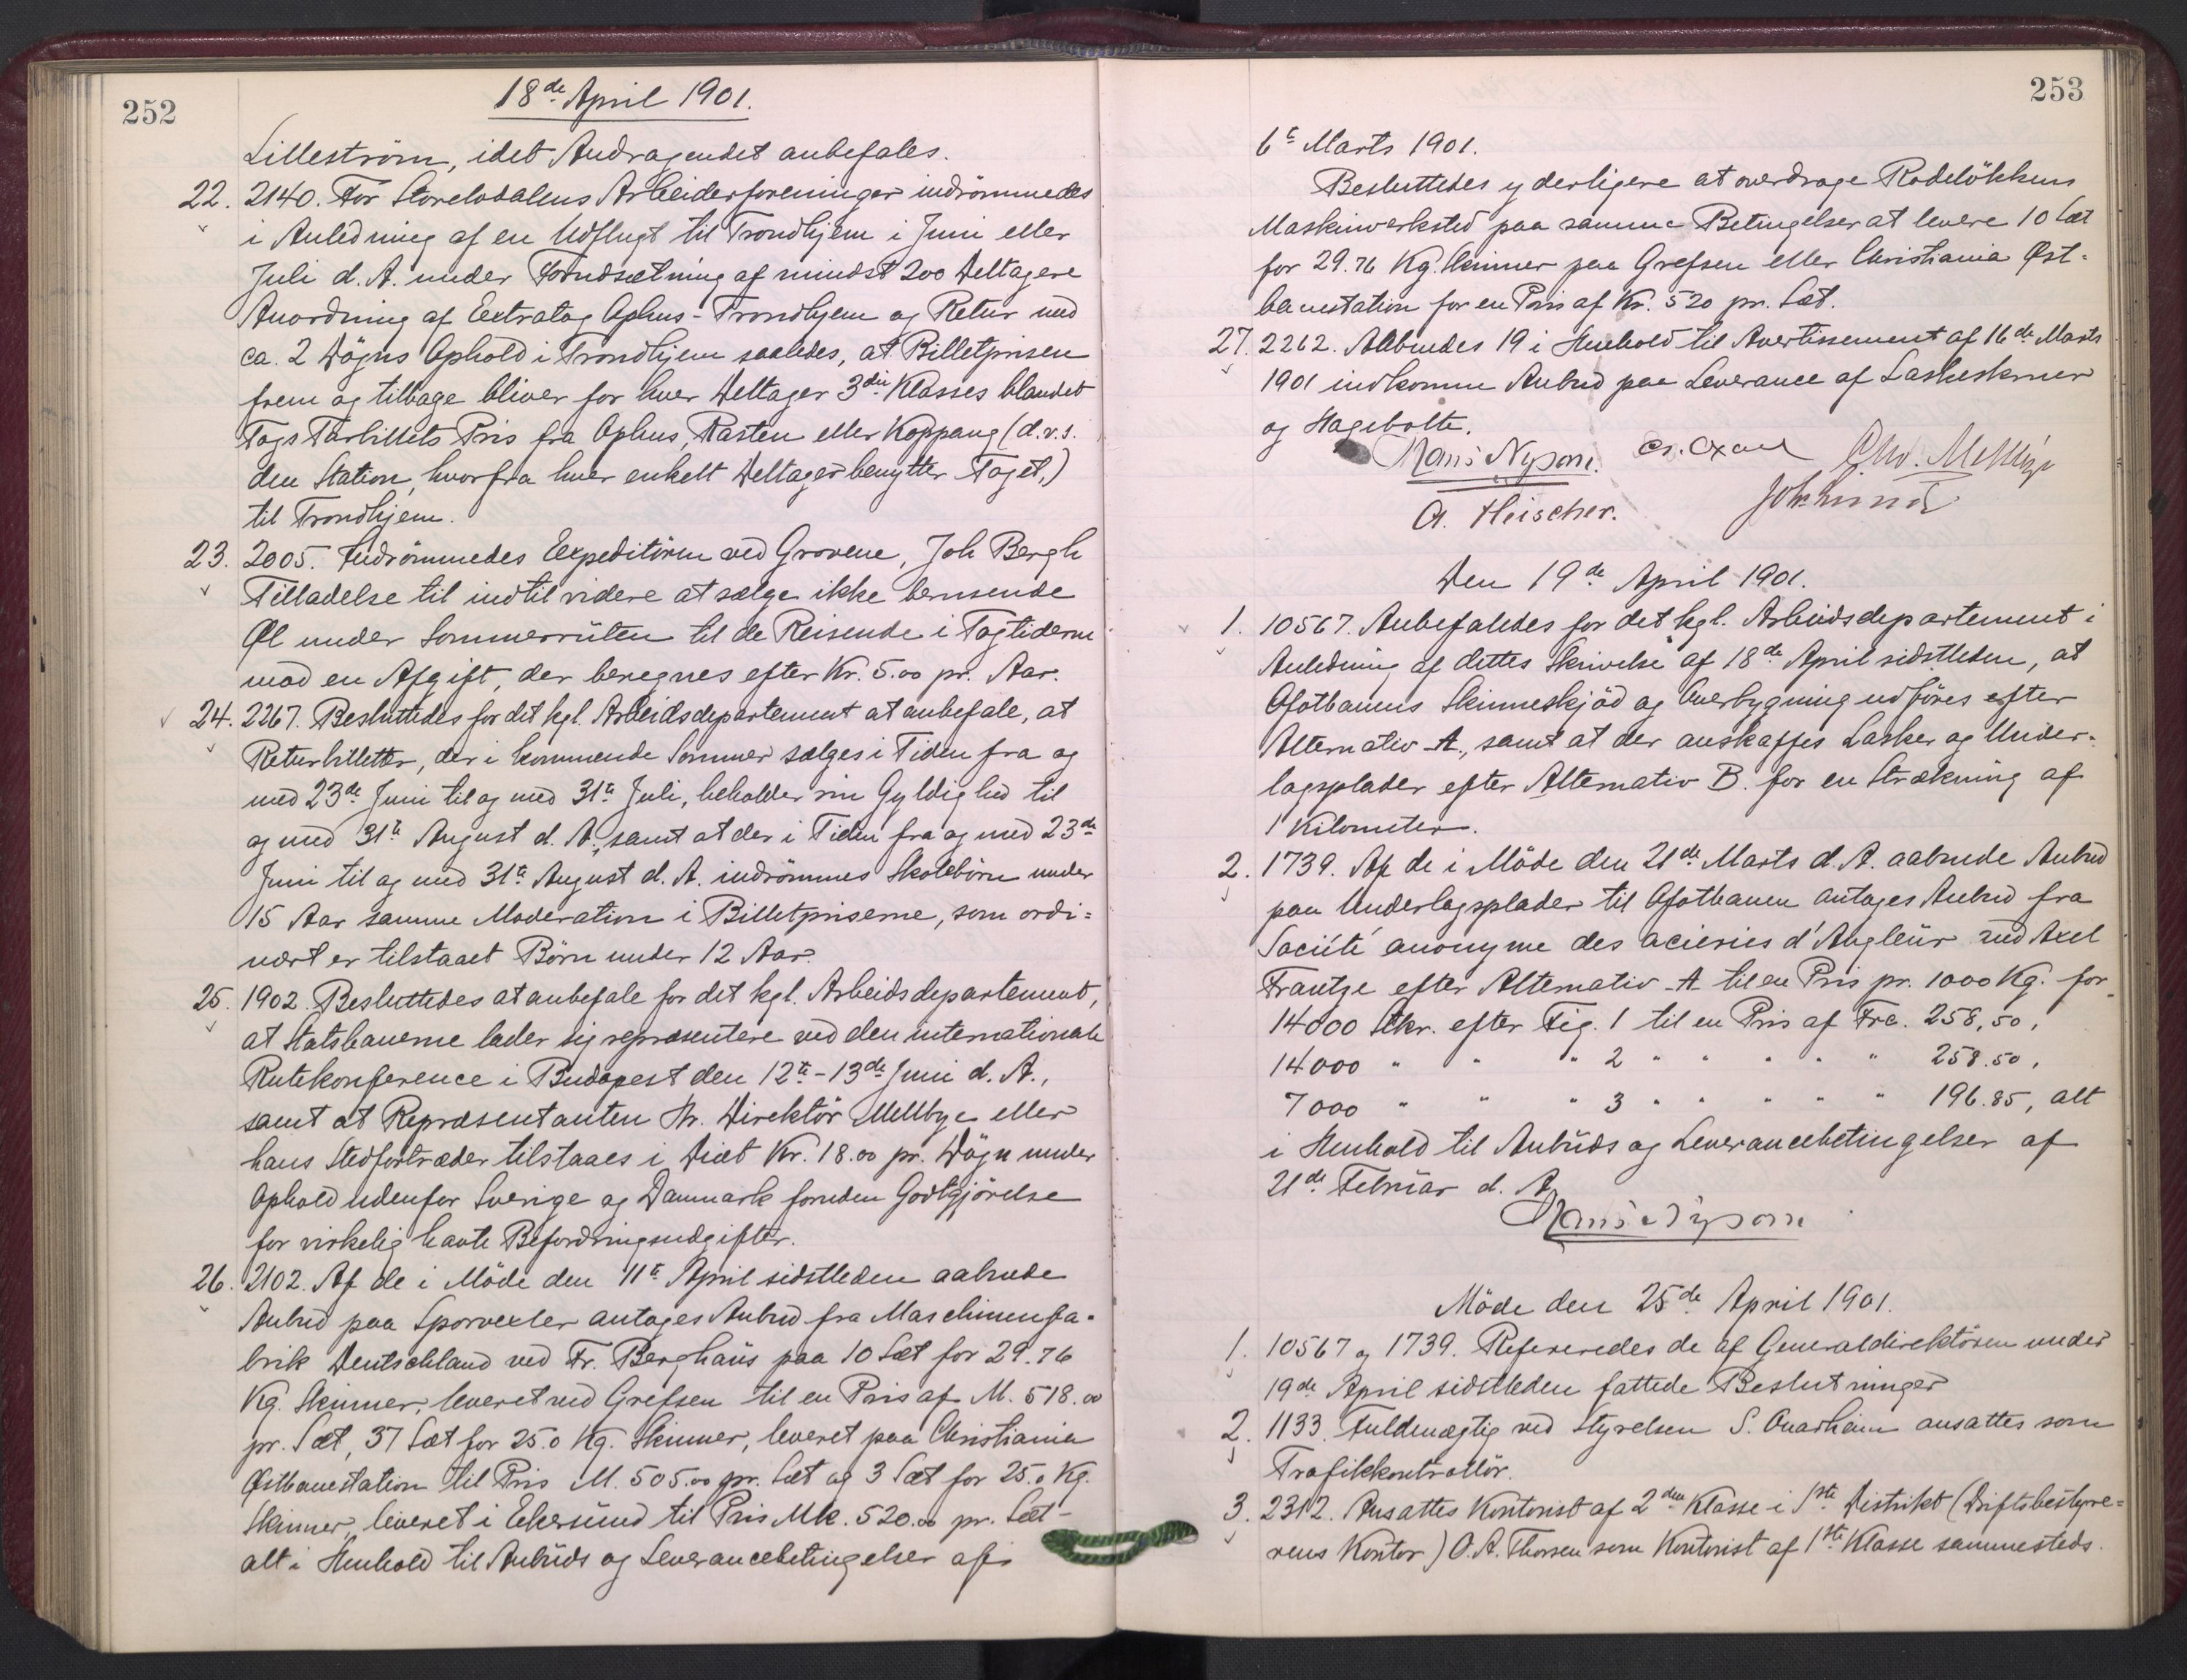 252
18de April 1901.
Lilleström, idet Andragendet anbefales.
22. 2140. For Storelvdalens Arbeiderforeninger indrömmedes
i Anledning af en Udflugt til Trondhjem i Juni eller
Juli d. A. under Forudsætning af mindst 200 Deltagere
Anordning af Extratog Ophus-Trondhjem og Retur med
ca. 2 Dögns Ophold i Trondhjem saaledes, at Billetprisen
frem og tilbage bliver for hver Deltager 3die Klasses blandet
Togs Turbillets Pris fra Ophus, Rasten eller Koppang (d.v.s.
den Station, hvorfra hver enkelt Deltager benytter Toget,)
til Trondhjem.
23. 2005. Indrömmedes Expeditören ved Grovene, Joh Bergh
Tilladelse til indtil videre at sælge ikke berusende
Øl under Sommerruten til de Reisende i Togtiderne
mod en Afgift, der beregnes efter Kr. 5.00 pr. Aar.
24. 2267. Besluttedes for det kgl. Arbeidsdepartement at anbefale, at
Returbilletter, der i kommende Sommer sælges i Tiden fra og
med 23de Juni til og med 31te Juli, beholder sin Gyldighed til
og med 31te August d. A., samt at der i Tiden fra og med 23de
Juni til og med 31te August d. A. indrömmes Skolebörn under
15 Aar samme Moderation i Billetpriserne, som ordi=
nært er tilstaaet Börn under 12 Aar.
25. 1902. Besluttedes at anbefale for det kgl. Arbeidsdepartement,
at Statsbanerne lader sig repræsentere ved den internationale
Rutekonference i Budapest den 12te-13de Juni d. A.,
samt at Repræsentanten Hr. Direktör Mellbye eller
hans Stedfortræder tilstaaes i Diæt Kr. 18.00 pr. Dögn under
Ophold udenfor Sverige og Danmark foruden Godtgjörelse
for virkelig havte Befordringsudgifter.
26. 2102. Af de i Möde den 11te April sidstleden aabnede
Anbud paa Sporvexler antages Anbud fra Maschinenfa-
brik Deutschland ved Fr. Berghaus paa 10 Sæt for 29.76
Kg. Skinner, leveret ved Grefsen til en Pris af M. 518.00
pr. Sæt, 37 Sæt for 25.0 Kg. Skinner, leveret paa Christiania
Østbanestation til Pris M. 505.00 pr. Sæt og 3 Sæt for 25.0 Kg.
Skinner, leveret i Ekersund til Pris Mk. 520.00 pr. Sæt -
alt i Henhold til Anbuds og Leverancebetingelser af
253
6te Marts 1901.
Besluttedes yderligere at overdrage Rodelökkens
Maskinverksted paa samme Betingelser at levere 10 Sæt
for 29.76 Kg. Skinner paa Grefsen eller Christiania Øst=
banestation for en Pris af Kr. 520 pr. Sæt.
27. 2262. Aabnedes 19 i Henhold til Avertissement af 16de Marts
1901 indkomne Anbud paa Leverance af Laskeskruer
og Hagebolte.
Hans Nysom.
A. Fleischer.
Den 19de April 1901.
1. 10567. Anbefaledes for det kgl. Arbeidsdepartement i
Anledning af dettes Skrivelse af 18de April sidstleden, at
Ofotbanens Skinneskjöd og Overbygning udföres efter
Alternativ A., samt at der anskaffes Lasker og Under-
lagsplader efter Alternativ B. for en Strækning af
1 Kilometer.
2. 1739. Af de i Möde den 21de Marts d. A. aabnede Anbud
paa Underlagsplader til Ofotbanen antages Anbud fra
Société anonyme des acieries d'Angleur ved Axel
Frantze efter Alternativ A til en Pris pr. 1000 Kg. for
14000 Stkr. efter Fig. 1 til en Pris af Frc. 258,50,
14000 " " " 2 " " " " " 258.50,
7000 " " " 3 " " " " " 196.85, alt
i Henhold til Anbuds og Leverancebetingelser af
21de Februar d. A.
Hans Nysom
Möde den 25de April 1901.
1. 10567 og 1739. Refereredes de af Generaldirektören under
19de April sidstleden fattede Beslutninger
2. 1133. Fuldmægtig ved Styrelsen S. Quarheim ansattes som
Trafikkontrollör.
3. 2312. Ansattes Kontorist af 2den Klasse i 1ste Distrikt (Driftsbestyre=
rens Kontor) O. A. Thorsen som Kontorist af 1ste Klasse sammesteds.